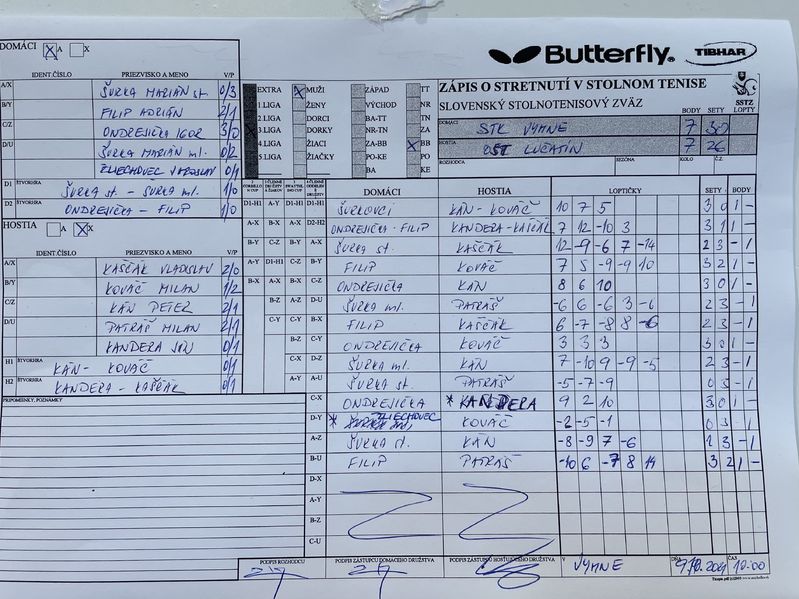 DOMÁCI X A X
IDENT.ČÍSLO PRIEZVISKO A MENO V/P
A/X ŠURKA MARIÁN st. 0/3
B/Y FILIP ADRIÁN 2/1
C/Z ONDREJIČKA IGOR 3/0
D/U ŠURKA MARIÁN ml. 0/2
ŽLIECHOVEC JAROSLAV 0/1
D1 ŠTVORHRA ŠURKA st. - ŠURKA ml. 1/0
D2 ŠTVORHRA ONDREJIČKA - FILIP 1/0
HOSTIA A X X
IDENT.ČÍSLO PRIEZVISKO A MENO V/P
A/X KAŠČÁK VLADISLAV 2/0
B/Y KOVÁČ MILAN 1/2
C/Z KÁN PETER 2/1
D/U PATRÁŠ MILAN 2/1
KANDERA JÁN 0/1
H1 ŠTVORHRA KÁN - KOVÁČ 0/1
H2 ŠTVORHRA KANDERA - KAŠČÁK 0/1
PRIPOMIENKY, POZNÁMKY
Butterfly TIBHAR
EXTRA X MUŽI ZÁPAD TT
1.LIGA ŽENY VÝCHOD NR
2.LIGA DORCI BA-TT TN
3.LIGA DORKY NR-TN ZA
4.LIGA ŽIACI ZA-BB X BB
5.LIGA ŽIAČKY PO-KE PO
BA KE
ZÁPIS O STRETNUTÍ V STOLNOM TENISE
SLOVENSKÝ STOLNOTENISOVÝ ZVÄZ BODY SETY LOPTY
SSTZ
DOMÁCI STK VYHNE 7 30
HOSTIA LUČATÍN 7 26
ROZHODCA SEZÓNA KOLO Č.Z.
DOMÁCI HOSTIA LOPTIČKY SETY BODY
D1-H1 A-Y D1-H1 D1-H1 ŠURKOVCI KÁN - KOVÁČ 10 7 5 3 0 1 -
A-X B-X A-X D2-H2 ONDREJIČKA - FILIP KANDERA - KAŠČÁK 7 12 -10 3 3 1 1 -
B-Y C-Z B-Y A-X ŠURKA st. KAŠČÁK 12 -9 -6 7 -14 2 3 - 1
A-Y D1-H1 C-Z B-Y FILIP KOVÁČ 7 5 -9 -9 10 3 2 1 -
B-X A-X B-X C-Z ONDREJIČKA KÁN 8 6 10 3 0 1 -
B-Z A-Z D-U ŠURKA ml. PATRÁŠ -6 6 -6 3 -6 2 3 - 1
C-Y C-Y B-X FILIP KAŠČÁK 6 -7 -8 8 -6 2 3 - 1
B-Z C-Y ONDREJIČKA KOVÁČ 3 3 3 3 0 1 -
C-X D-Z ŠURKA ml. KÁN 7 -10 9 -9 -5 2 3 - 1
A-Y A-U ŠURKA st. PATRÁŠ -5 -7 -9 0 3 - 1
C-X ONDREJIČKA * KANDERA 9 2 10 3 0 1 -
D-Y * ŽLIECHOVEC KOVÁČ -2 -5 -1 0 3 - 1
A-Z ŠURKA st. KÁN -8 -9 7 -6 1 3 - 1
B-U FILIP PATRÁŠ -10 6 -7 8 14 3 2 1 -
D-X
A-Y
B-Z
C-U
PODPIS ROZHODCU PODPIS ZÁSTUPCU DOMÁCEHO DRUŽSTVA PODPIS ZÁSTUPCU HOSŤUJÚCEHO DRUŽSTVA V VYHNE DŇA ČAS 10:00